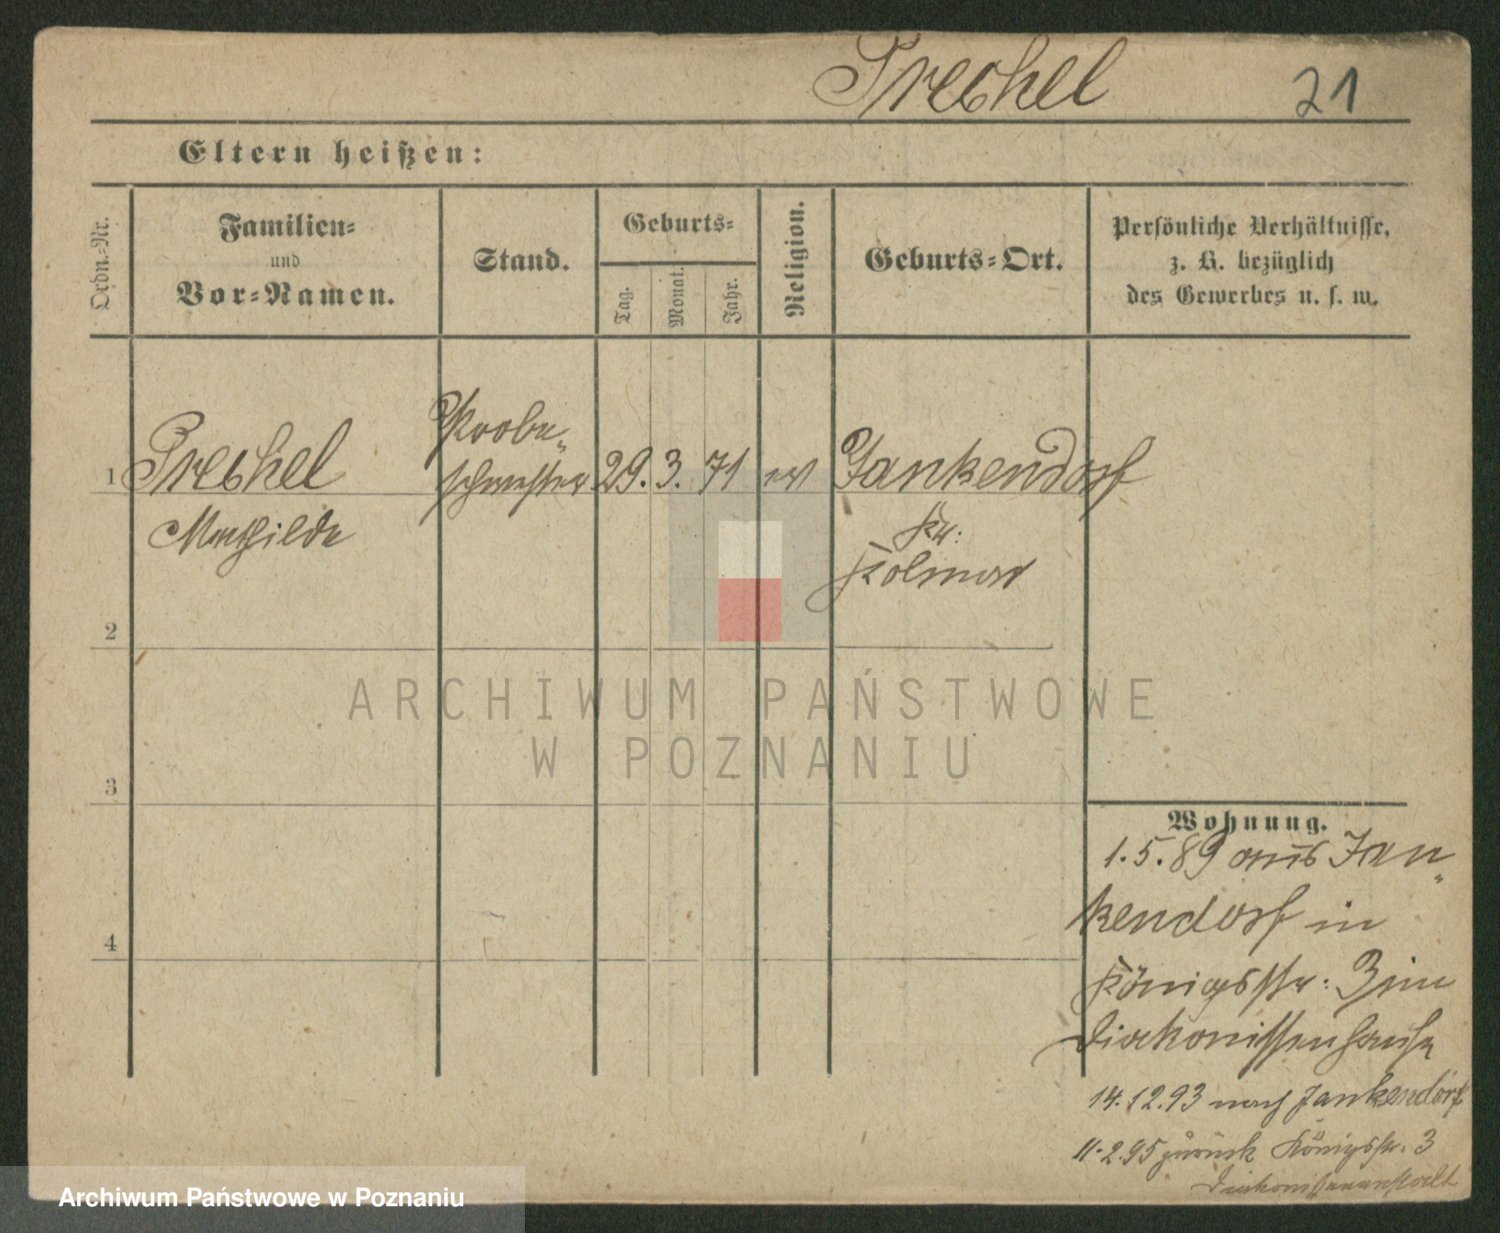 Prechel 21
Eltern heißen:
Ordn.-Nr.
Familien-
und
Vor-Namen.
Stand.
Geburts-
Tag.
Monat.
Jahr.
Religion.
Geburts-Ort.
Persönliche Verhältnisse,
z. B. bezüglich
des Gewerbes u. s. w.
Probe-
1 Prechel schwester 29. 3. 71 ev Jankendorf
Mathilde Kr.
Kolmar
2
ARCHIWUM PAŃSTWOWE
W POZNANIU
3
Wohnung.
1.5.89 aus Jan-
kendorf in
4
Königsstr. 3 im
Diakonissenhause
14.12.93 nach Jankendorf
11.2.95 zurück Königsstr. 3
Diakonissenanstalt
Archiwum Państwowe w Poznaniu